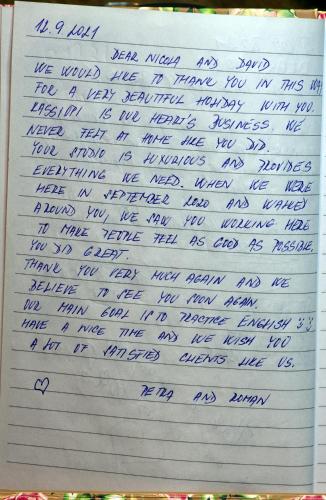 12.9.2021
DEAR NICOLA AND DAVID
WE WOULD LIKE TO THANK YOU IN THIS WAY
FOR A VERY BEAUTIFUL HOLIDAY WITH YOU.
KASSIOPI IS OUR HEART'S BUSINESS. WE
NEVER FELT AT HOME LIKE YOU DID.
YOUR STUDIO IS LUXURIOUS AND PROVIDES
EVERYTHING WE NEED. WHEN WE WERE
HERE IN SEPTEMBER 2020 AND WALKED
AROUND YOU, WE SAW YOU WORKING HERE
TO MAKE PEOPLE FEEL AS GOOD AS POSSIBLE.
YOU DID GREAT.
THANK YOU VERY MUCH AGAIN AND WE
BELIEVE TO SEE YOU SOON AGAIN.
OUR MAIN GOAL IS TO PRACTICE ENGLISH
HAVE A NICE TIME AND WE WISH YOU
A LOT OF SATISFIED CLIENTS LIKE US.
♡ PETRA AND ROMAN